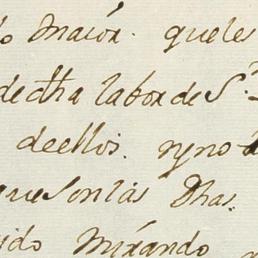 o maior. queles
dectha labor de S.
deellos. nyno
que Son las Dhas.
ido Mirando